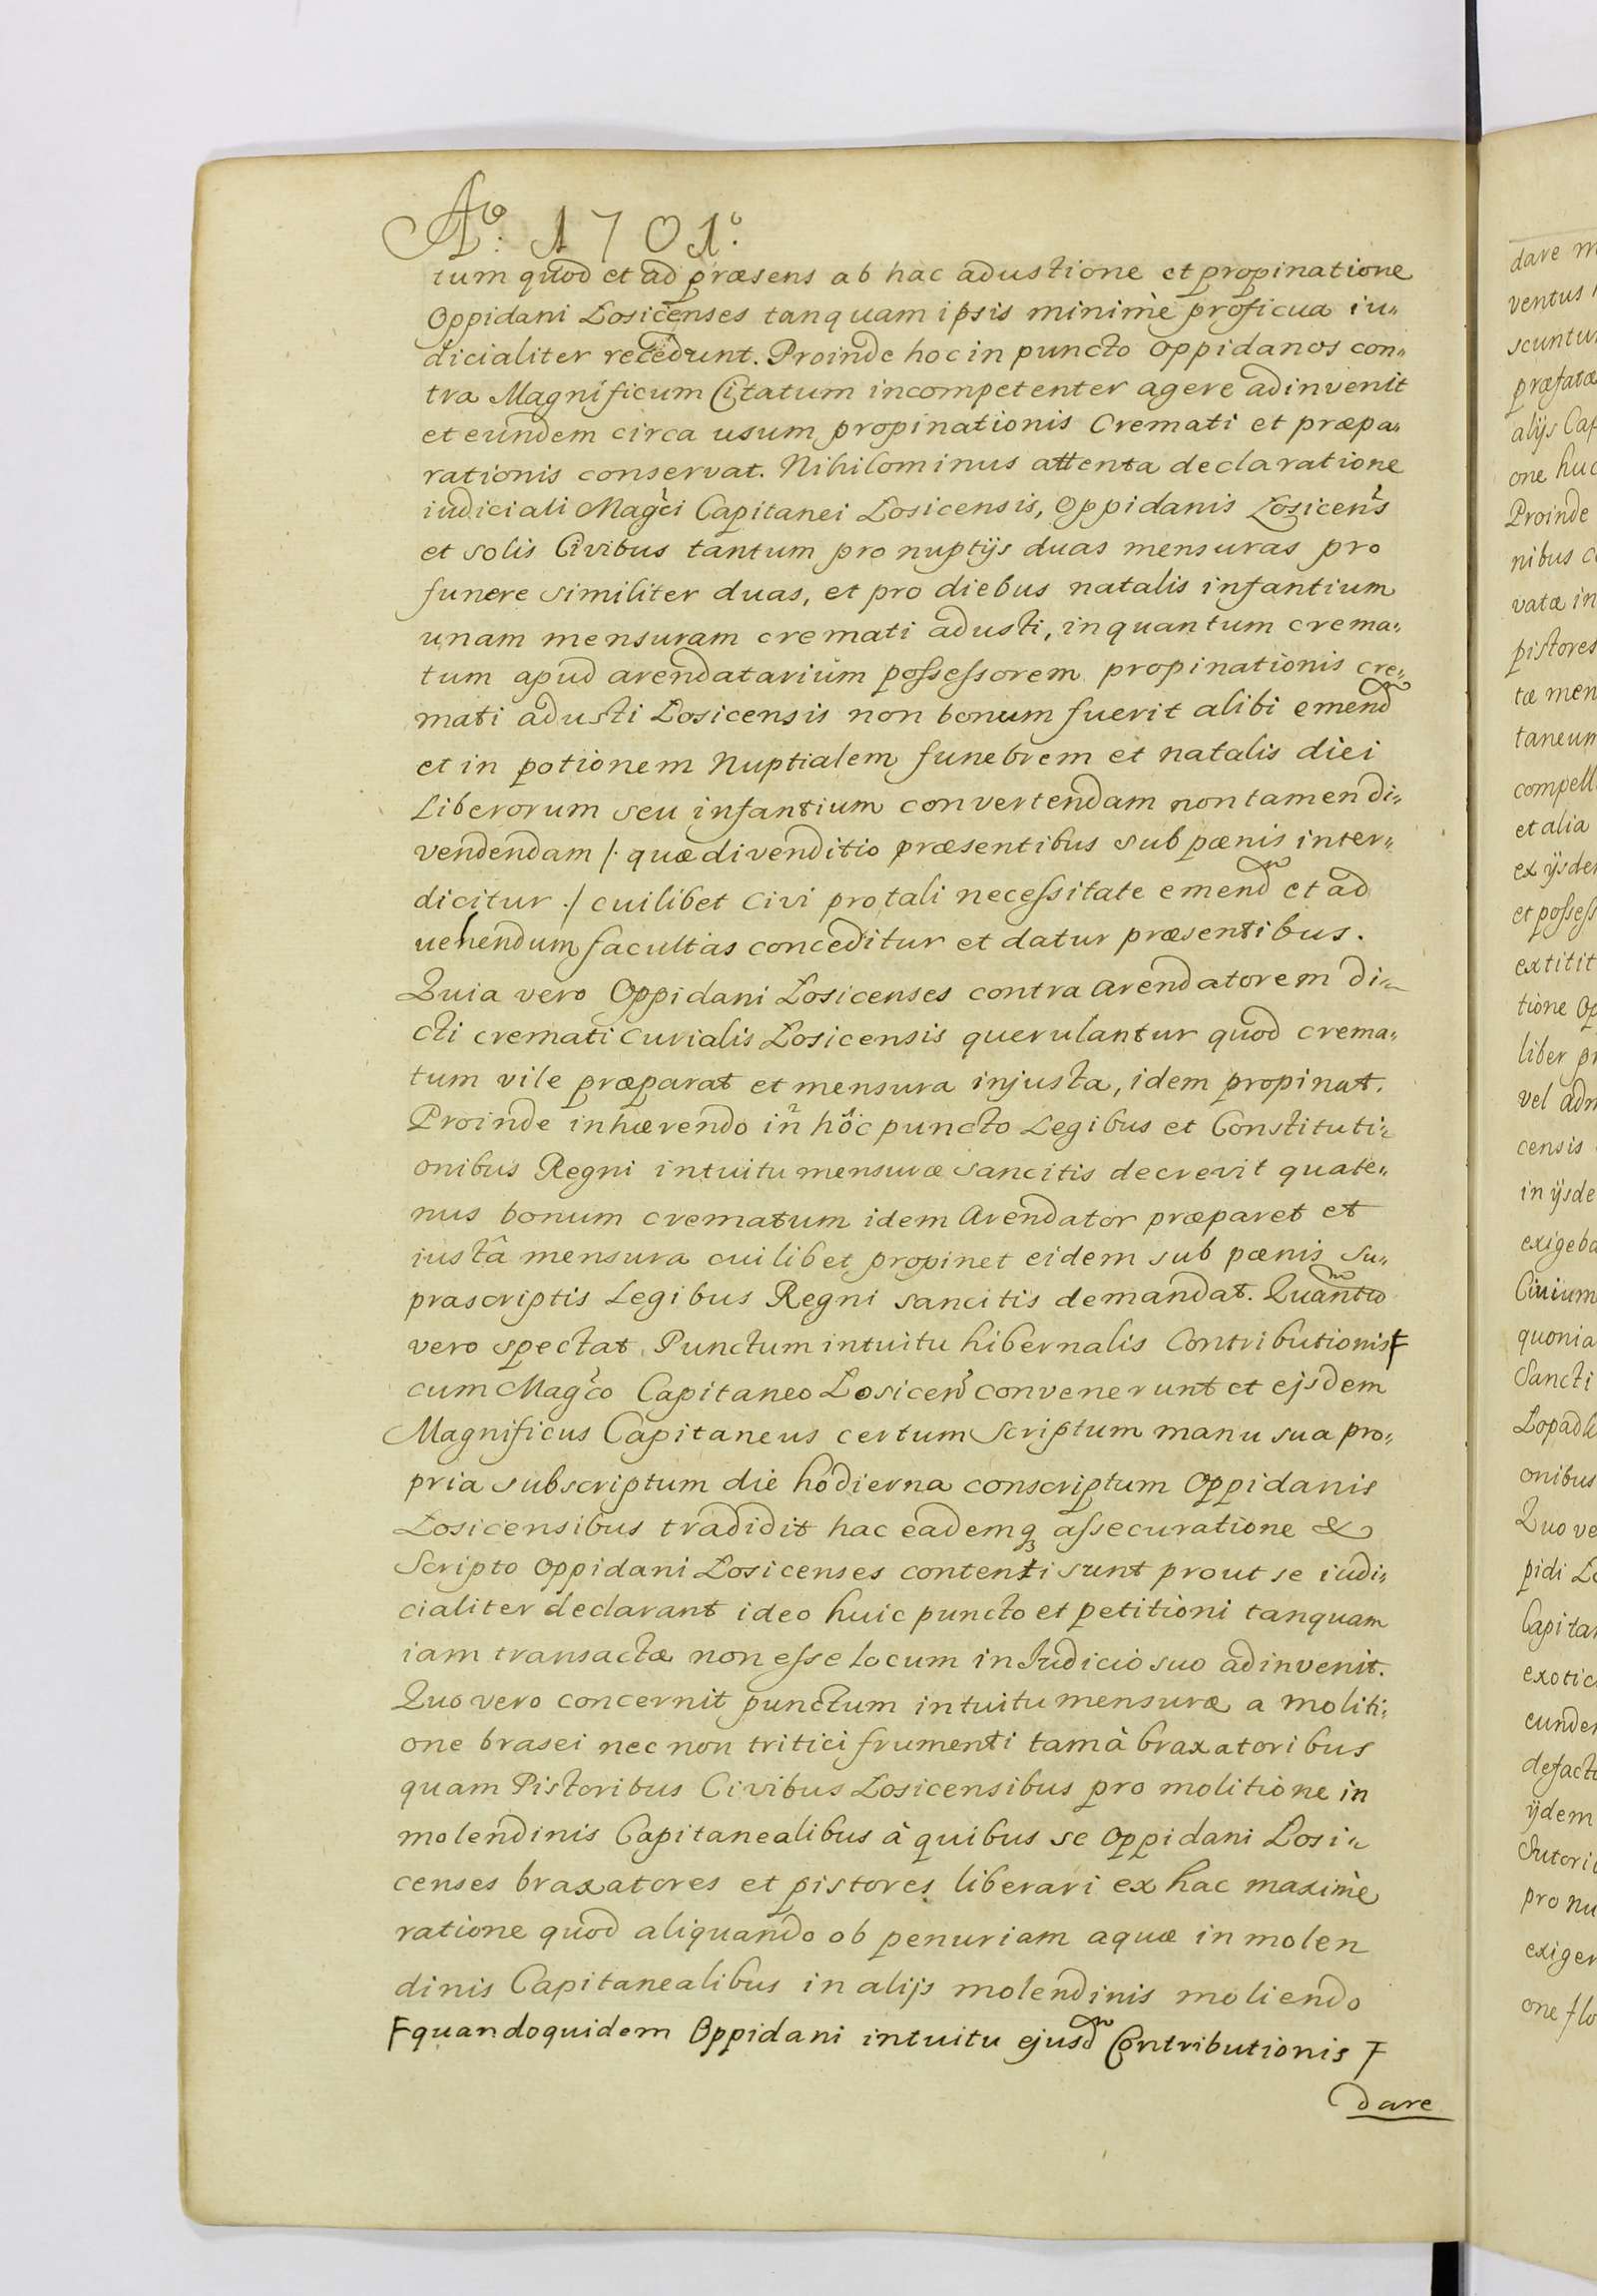 Aо: 1701о.
tum quod et ad præsens ab hac adustione et propinatione
Oppidani Losicenses tanquam ipsis minimè proficua iu„
dicialiter recedunt. Proinde hoc in puncto oppidanos con„
tra Magnificum Citatum incompetenter agere adinvenit
et eundem circa usum propinationis Cremati et præpa„
rationis conservat. Nihilominus attenta declaratione
iudiciali Magci Capitanei Losicensis, Oppidanis Losicens
et solis Civibus tantum pro nuptijs duas mensuras pro
funere similiter duas, et pro diebus natalis infantium
unam mensuram cremati adusti, inquantum crema„
tum apud arendatarium possessorem propinationis cre„
mati adusti Losicensis non bonum fuerit alibi emend
et in potionem Nuptialem funebrem et natalis diei
Liberorum seu infantium convertendam non tamen di„
vendendam /. quæ divenditio præsentibus sub pœnis inter„
dicitur ./ cuilibet Civi pro tali necessitate emend et ad
vehendum facultas conceditur et datur præsentibus.
Quia vero Oppidani Losicenses contra arendatorem di„
cti cremati curialis Losicensis querulantur quod crema„
tum vile præparat et mensura injusta, idem propinat.
Proinde inhærendo in hoc puncto Legibus et Constituti„
onibus Regni intuitu mensuræ sancitis decrevit quate„
nus bonum crematum idem Arendator præparet et
iustâ mensura cuilibet propinet eidem sub pœnis su„
prascriptis Legibus Regni sancitis demandat. Quantu
vero spectat Punctum intuitu hibernalis Contributionis Ŧ
cum Magco Capitaneo Losicen convenerunt et ejsdem
Magnificus Capitaneus certum Scriptum manu sua pro„
pria subscriptum die hodierna conscriptum Oppidanis
Losicensibus tradidit hac eademq assecuratione &
Scripto Oppidani Losicenses contenti sunt prout se iudi„
cialiter declarant ideo huic puncto et petitioni tanquam
iam transactæ non esse locum in Iudicio suo adinvenit.
Quo vero concernit punctum intuitu mensuræ a moliti„
one brasei nec non tritici frumenti tam à braxatoribus
quam Pistoribus Civibus Losicensibus pro molitione in
molendinis Capitanealibus à quibus se Oppidani Losi„
censes braxatores et pistores liberari ex hac maximè
ratione quod aliquando ob penuriam aquæ in molen
dinis Capitanealibus in alijs molendinis moliendo
Ŧ quandoquidem Oppidani intuitu ejusd Contributionis Ŧ
dare
dare
ventus
scuntur
præfatæ
alijs Cap
one huc
Proinde
nibus
vatæ in
pistores
tæ men
taneum
compell
et alia
ex ijsdem
et possess
extitit
tione Op
liber pr
vel adm
censis
in ijsde
exigeba
Civium
quonia
Sancti
Lopadk
onibus
Quo ve
pidi Lo
Capitan
exotic
eundem
defacto
ijdem
Sutori
pro nu
exigen
one flo